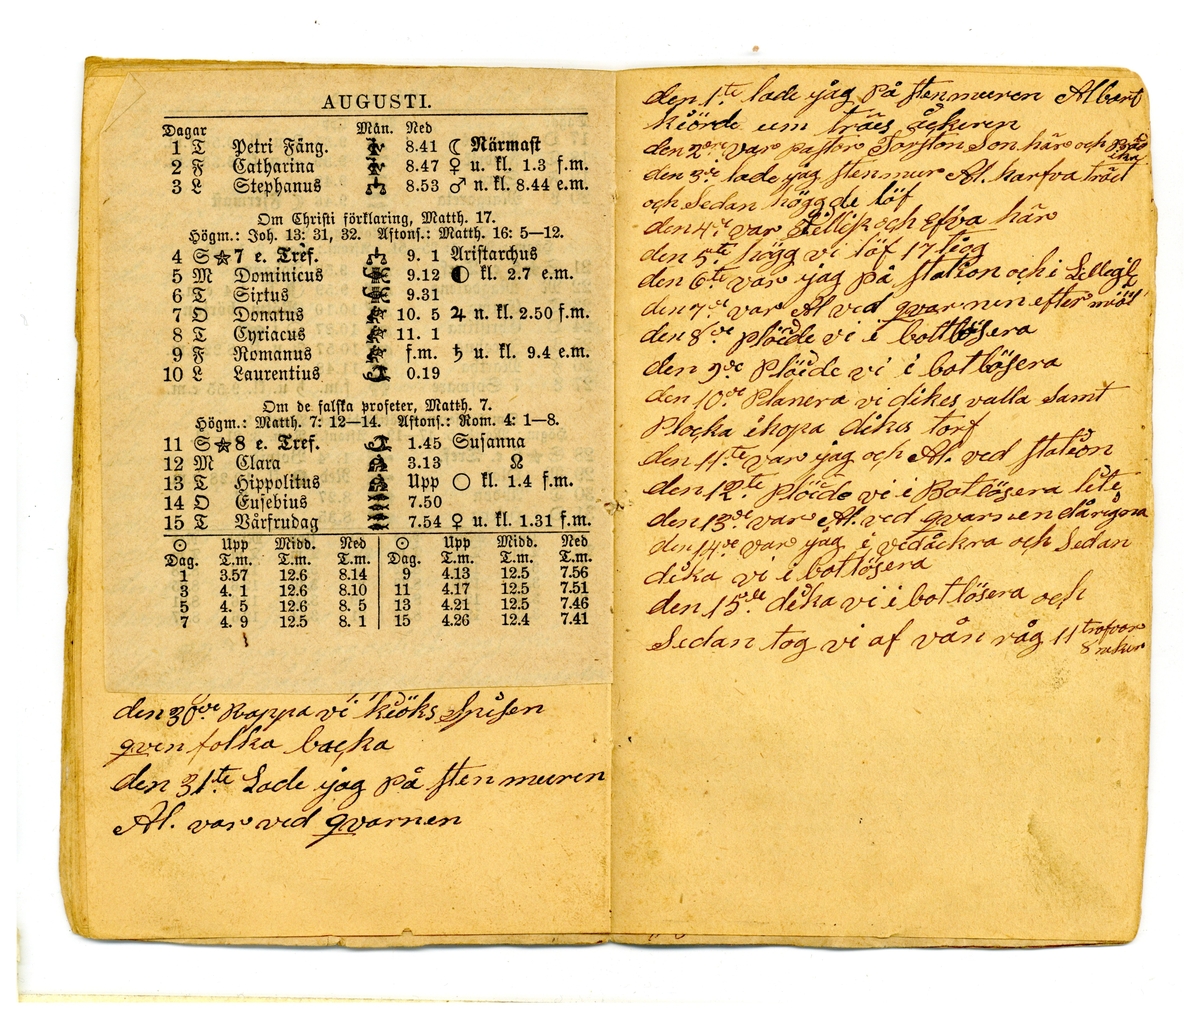 AUGUSTI.
Dagar Mån. Ned
1 T Petri Fäng. 8.41 ☾ Närmast
2 F Catharina 8.47 ♀ u. kl. 1.3 f.m.
3 L Stephanus 8.53 ♂ n. kl. 8.44 e.m.
Om Christi förklaring, Matth. 17.
Högm.: Joh. 13: 31, 32. Aftons.: Matth. 16: 5—12.
4 S 7 e. Tref. 9. 1 Aristarchus
5 M Dominicus 9.12 kl. 2.7 e.m.
6 T Sixtus 9.31
7 O Donatus 10. 5 ♃ n. kl. 2.50 f.m.
8 T Cyriacus 11. 1
9 F Romanus f.m. ♄ u. kl. 9.4 e.m.
10 L Laurentius 0.19
Om de falska profeter, Matth. 7.
Högm.: Matth. 7: 12—14. Aftons.: Rom. 4: 1—8.
11 S 8 e. Tref. 1.45 Susanna
12 M Clara 3.13 ☊
13 T Hippolitus Upp ○ kl. 1.4 f.m.
14 O Eusebius 7.50
15 T Vårfrudag 7.54 ♀ u. kl. 1.31 f.m.
☉ Upp Midd. Ned ☉ Upp Midd. Ned
Dag. T.m. T.m. T.m. Dag. T.m. T.m. T.m.
1 3.57 12.6 8.14 9 4.13 12.5 7.56
3 4. 1 12.6 8.10 11 4.17 12.5 7.51
5 4. 5 12.6 8. 5 13 4.21 12.5 7.46
7 4. 9 12.5 8. 1 15 4.26 12.4 7.41
den 30de Rappa vi kiöks Spisen
qvinfolka backa
den 31te Lade jag på stenmuren
Al. var ved qvarnen
den 1te lade jag på stenmuren Albert
kiörde um träes åckeren
den 2dre var pastor Torston Son här och
den 3de lade jag stenmur Al. harfva träet
och Sedan höggde löf
den 4de var och Efva här
den 5te högg vi löf 17 tiog
den 6te var jag på station och i
den 7de var Al ved qvarnen efter miöl
den 8de plöide vi i botlösera
den 9de Plöide vi i botlösera
den 10de Planera vi dikes valla samt
Plocka ihopa dikes torf
den 11te var jag och Al. ved station
den 12te Plöide vi i Botlösera lite
den 13de var Al. ved qvarnen
den 14de var jag i vidåckra och Sedan
dika vi i botlösera
den 15de dika vi i botlösera och
Sedan tog vi af vån råg 11 trafvar
8 nekur